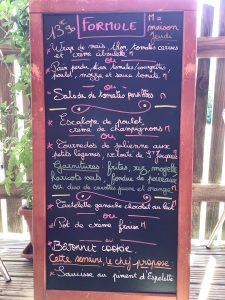 13€90 FORMULE M = maison
Jeudi
* Wrap de maïs, thon, tomates cerises
et crème ciboulette M
ou
* Pain perdu, tomates/courgettes/
poulet, mozza et sauce tomate M
ou
* Salade de tomates
* Escalope de poulet,
crème de champignons M
ou
* Tournedos de julienne aux
petits légumes, velouté de
Garnitures : frites, riz,
haricots verts, fondue de poireaux
ou duo de carottes jaune et orange M
* Tartelette ganache chocolat au lait M
ou
* Pot de crème fraise M
ou
* Bâtonnet cookie
Cette semaine, le chef propose
* Saucisse au piment d'Espelette